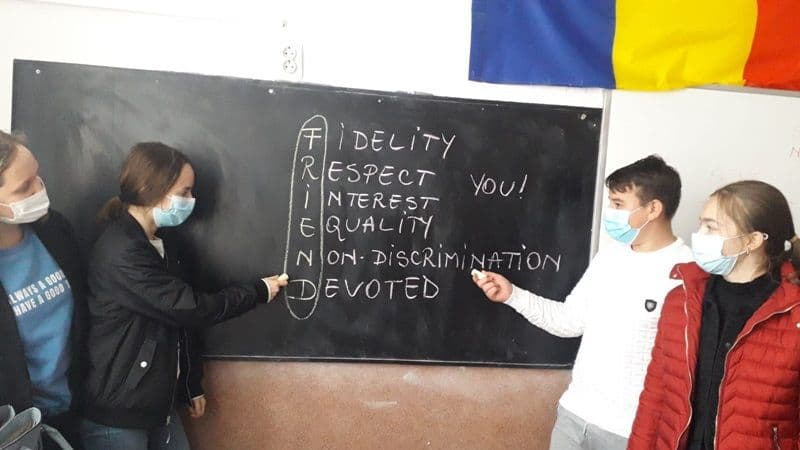 FIDELITY
RESPECT
INTEREST
EQUALITY
NON-DISCRIMINATION
DEVOTED
YOU!
ALWAYS A GOOD
HAVE A GOOD